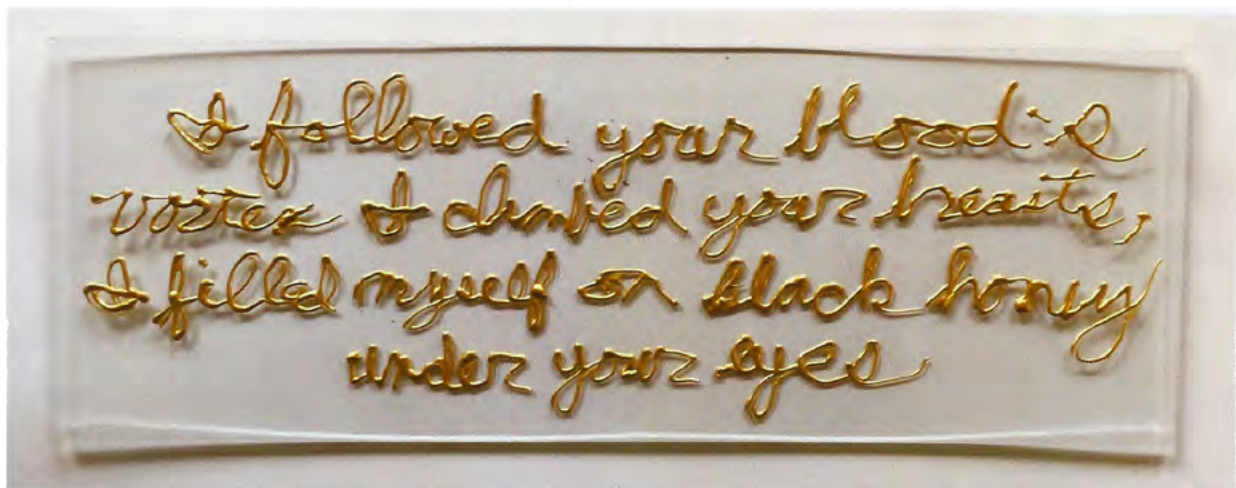 I followed your blood's
vortex I climbed your breasts,
I filled myself on black honey
under your eyes